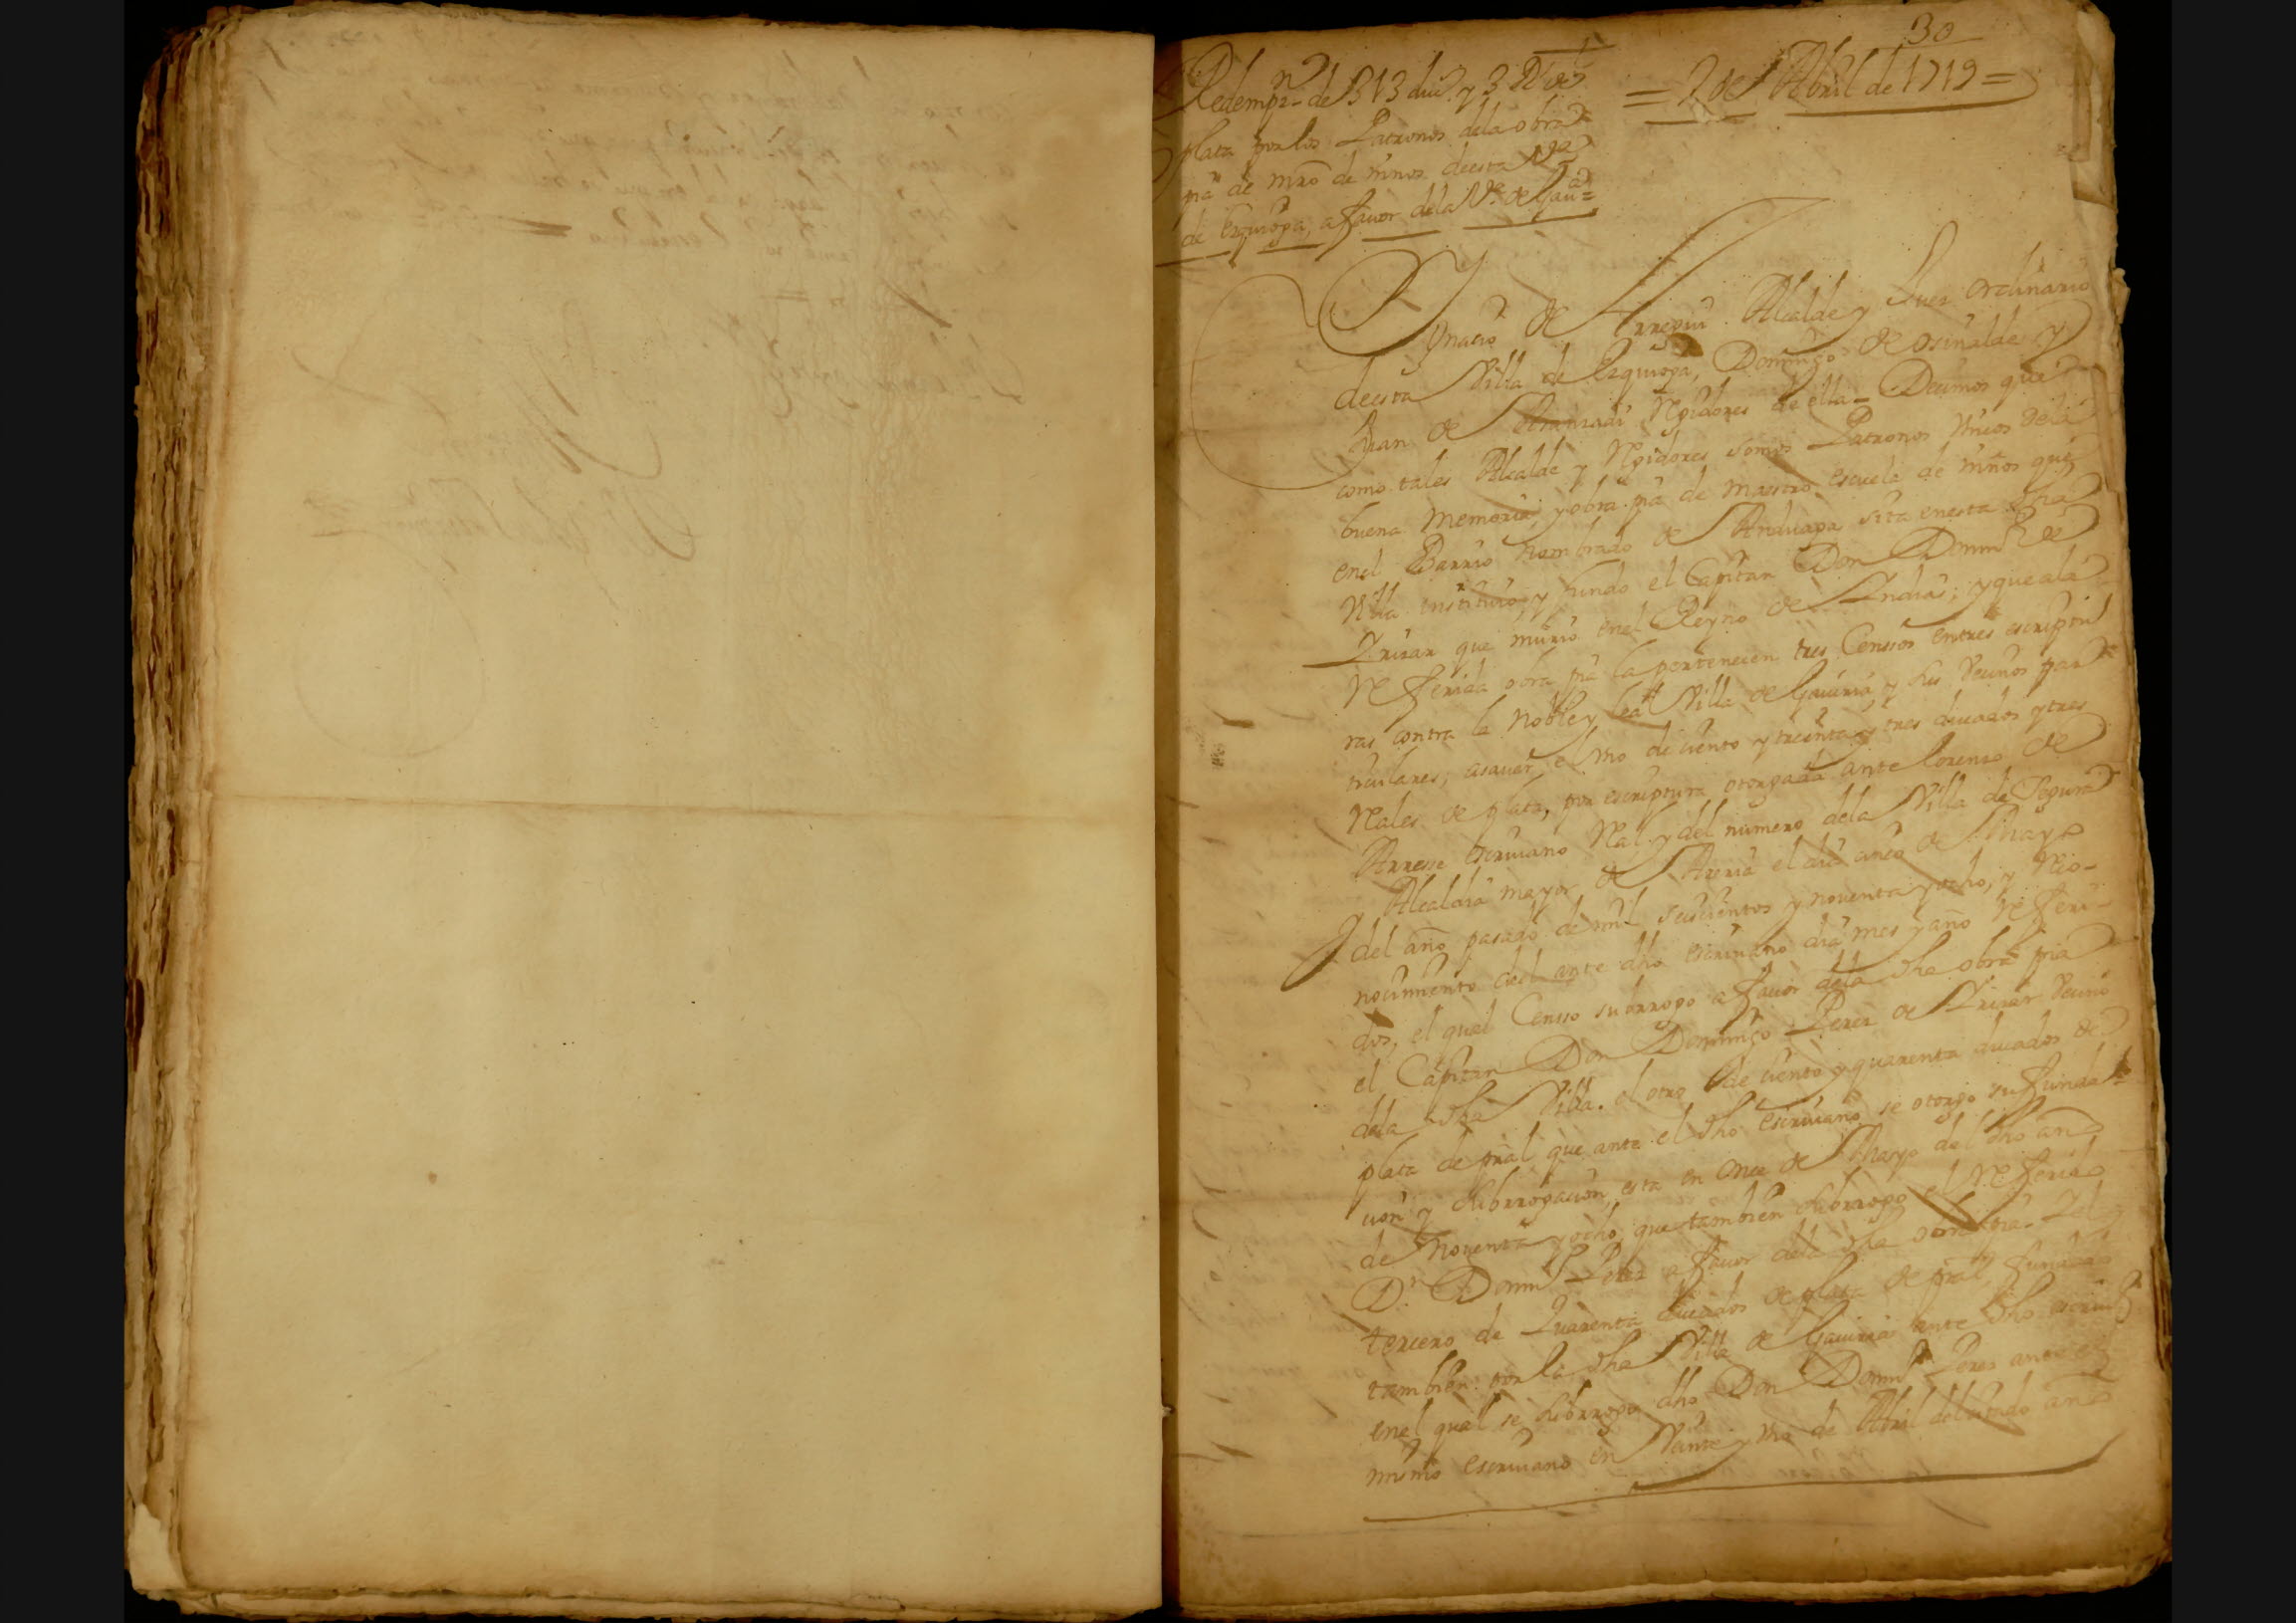 30
Redempn. de 313 duc.s y 3 Rs de
plata por los Patronos dela obra
pia de mro de niños deesta Va
de Ezquioga, a favor dela Va. de Gaua=
= 2 de Abril de 1719 =
Ygnacio de Alcalde y Juez ordinario
deesta Villa de Ezquioga, Domingo de osinalde y
Juan de Rexidores de ella = Decimos que
como tales Alcalde y Rexidores somos Patronos Unicos dela
buena Memoria y obra pia de maestro escuela de niños que
enel Barrio nombrado de Anduaga sita enesta dha
Villa instituio y fundo el Capitan Don Domo de
Yrizar que murio enel Reyno de Indias; y que ala
Referida obra pia la pertenecen tres Censsos entres escriptu
ras contra la Noble y leal Villa de Gauiria y sus vecinos par
ticulares; asauer el vno de ciento y treinta y tres ducados y tres
Reales de plata, por escriptura otorgada ante Lorenzo de
Arrese escriuano Real y del numero dela Villa de Segura
y Alcaldia mayor de Areria el dia cinco de Mayo
del año pasado de mil seiscientos y nouenta y ocho, y Reco-
nocimiento del ante dho escriuano dia mes y año Referi-
dos, el qual Censso subrrogo a fauor dela dha obra pia
el Capitan Don Domingo Perez de Yrizar vecino
dela dha Villa. el otro de ciento y quarenta ducados de
plata de pral que ante el dho escriuano se otorgo su funda
cion y subrrogacion esta en onze de Mayo del dho año
de Nouenta y ocho, que tambien subrrogo el Referido
Dn. Domo Perez a fauor dela dha obra pia. Y el
tercero de Quarenta ducados de plata de pral, fundado
tambien por la dha Villa de Gauiria ante dho escriuo
enel qual se subrrogo dho Don Domo Perez ante el
mismo escriuano en Veinte y vno de Abril del citado año